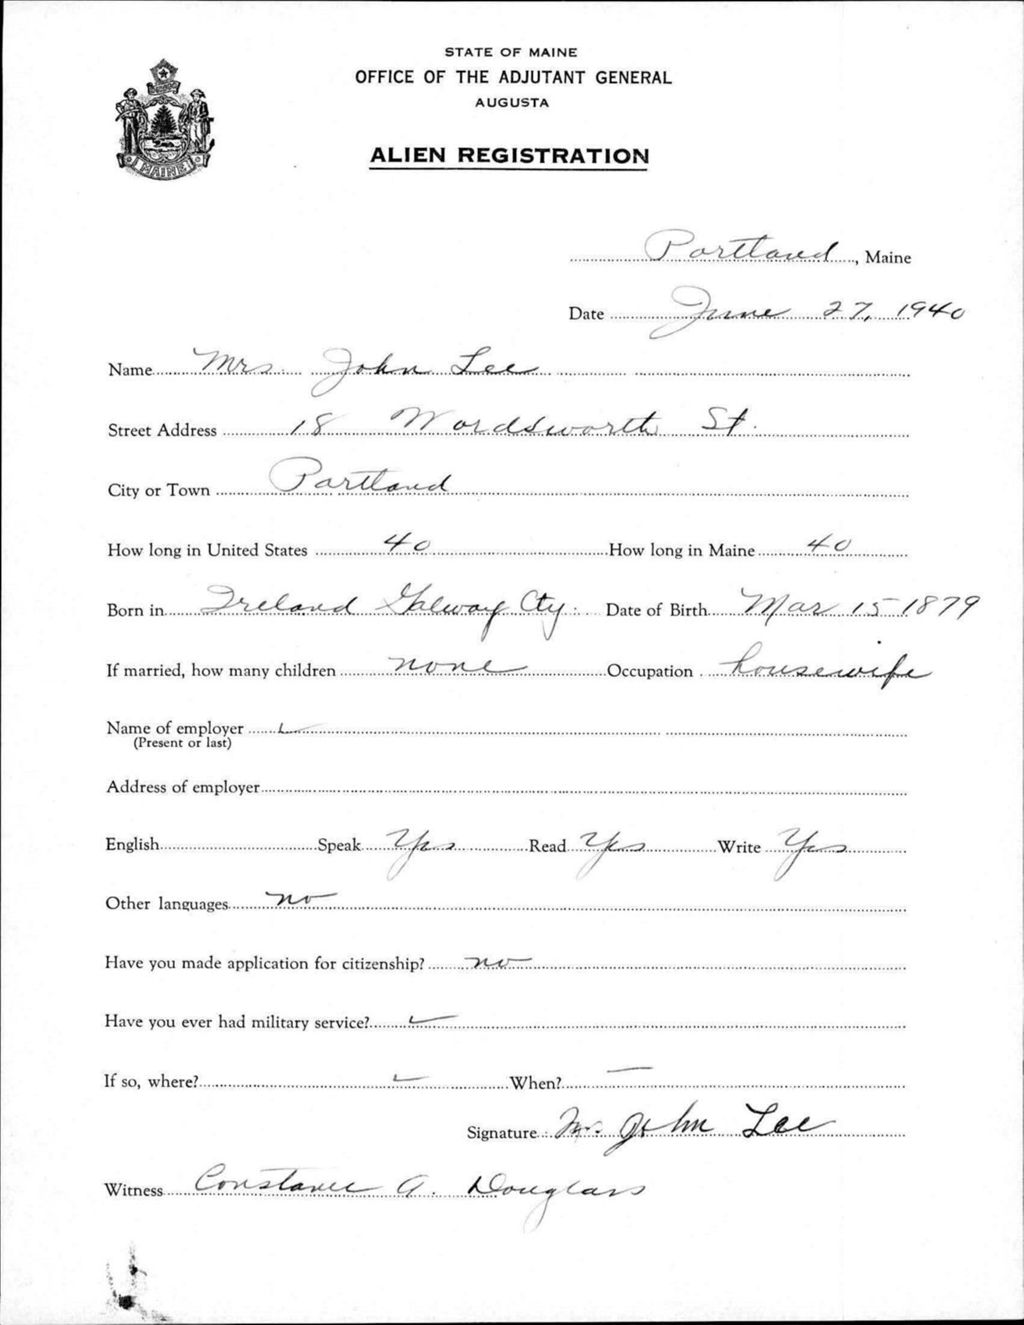 STATE OF MAINE
OFFICE OF THE ADJUTANT GENERAL
AUGUSTA
ALIEN REGISTRATION
MAINE
Portland, Maine
Date June 27, 1940
Name Mrs. John Lee
Street Address 18 Wordsworth St.
City or Town Portland
How long in United States 40 How long in Maine 40
Born in Ireland Galway Cty. Date of Birth Mar 15 1879
If married, how many children none Occupation housewife
Name of employer
(Present or last)
Address of employer
English Speak Yes Read Yes Write Yes
Other languages no
Have you made application for citizenship? no
Have you ever had military service?
If so, where? When? —
Signature Mrs. John Lee
Witness Constance A. Douglass